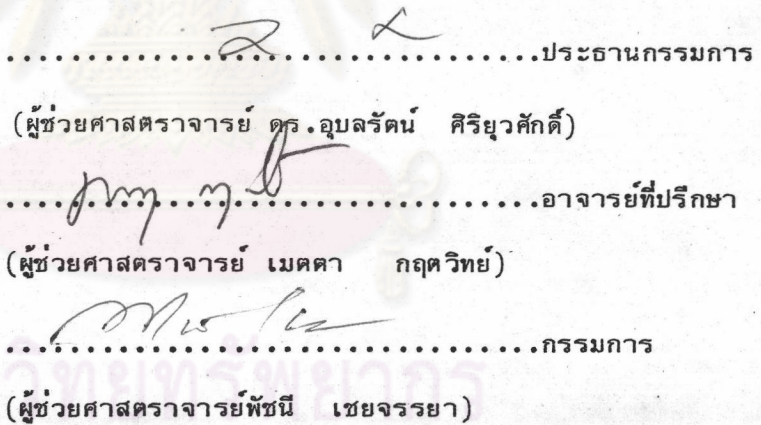 ..................................ประธานกรรมการ
(ผู้ช่วยศาสตราจารย์ ดร.อุบลรัตน์ ศิริยุวศักดิ์)
..................................อาจารย์ที่ปรึกษา
(ผู้ช่วยศาสตราจารย์ เมตตา กฤตวิทย์)
..................................กรรมการ
วิทยทรัพยากร
(ผู้ช่วยศาสตราจารย์พัชนี เชยจรรยา)